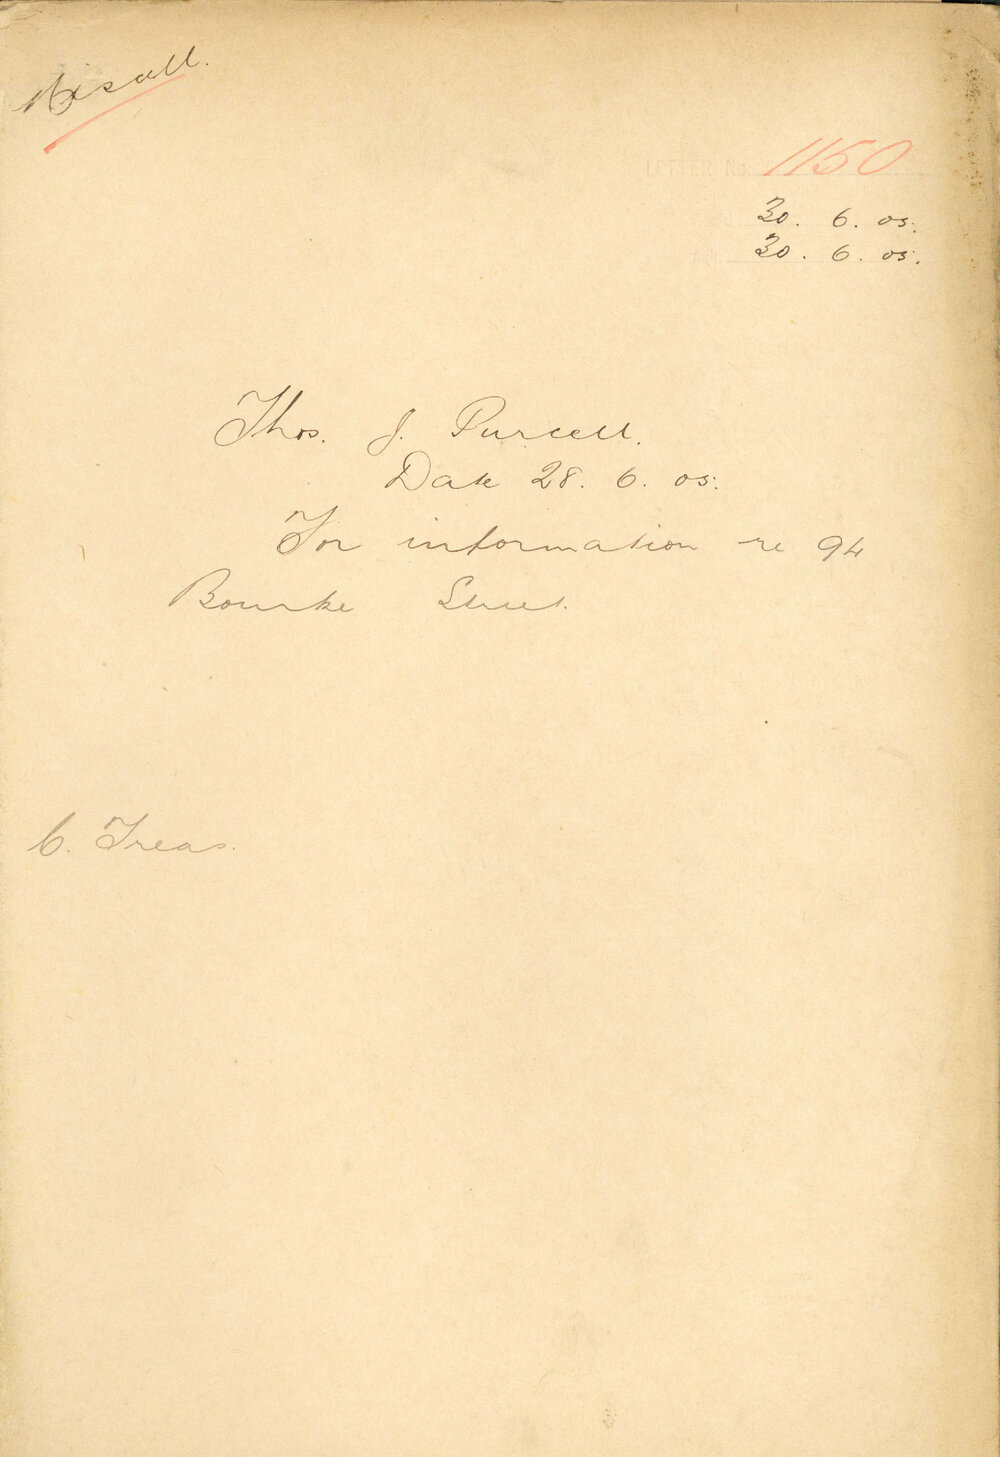 Miscell.
LETTER No. 1150
30. 6. 05.
30. 6. 05.
Thos. J. Purcell.
Date 28. 6. 05.
For information re 94
Bourke Street.
C. Treas.